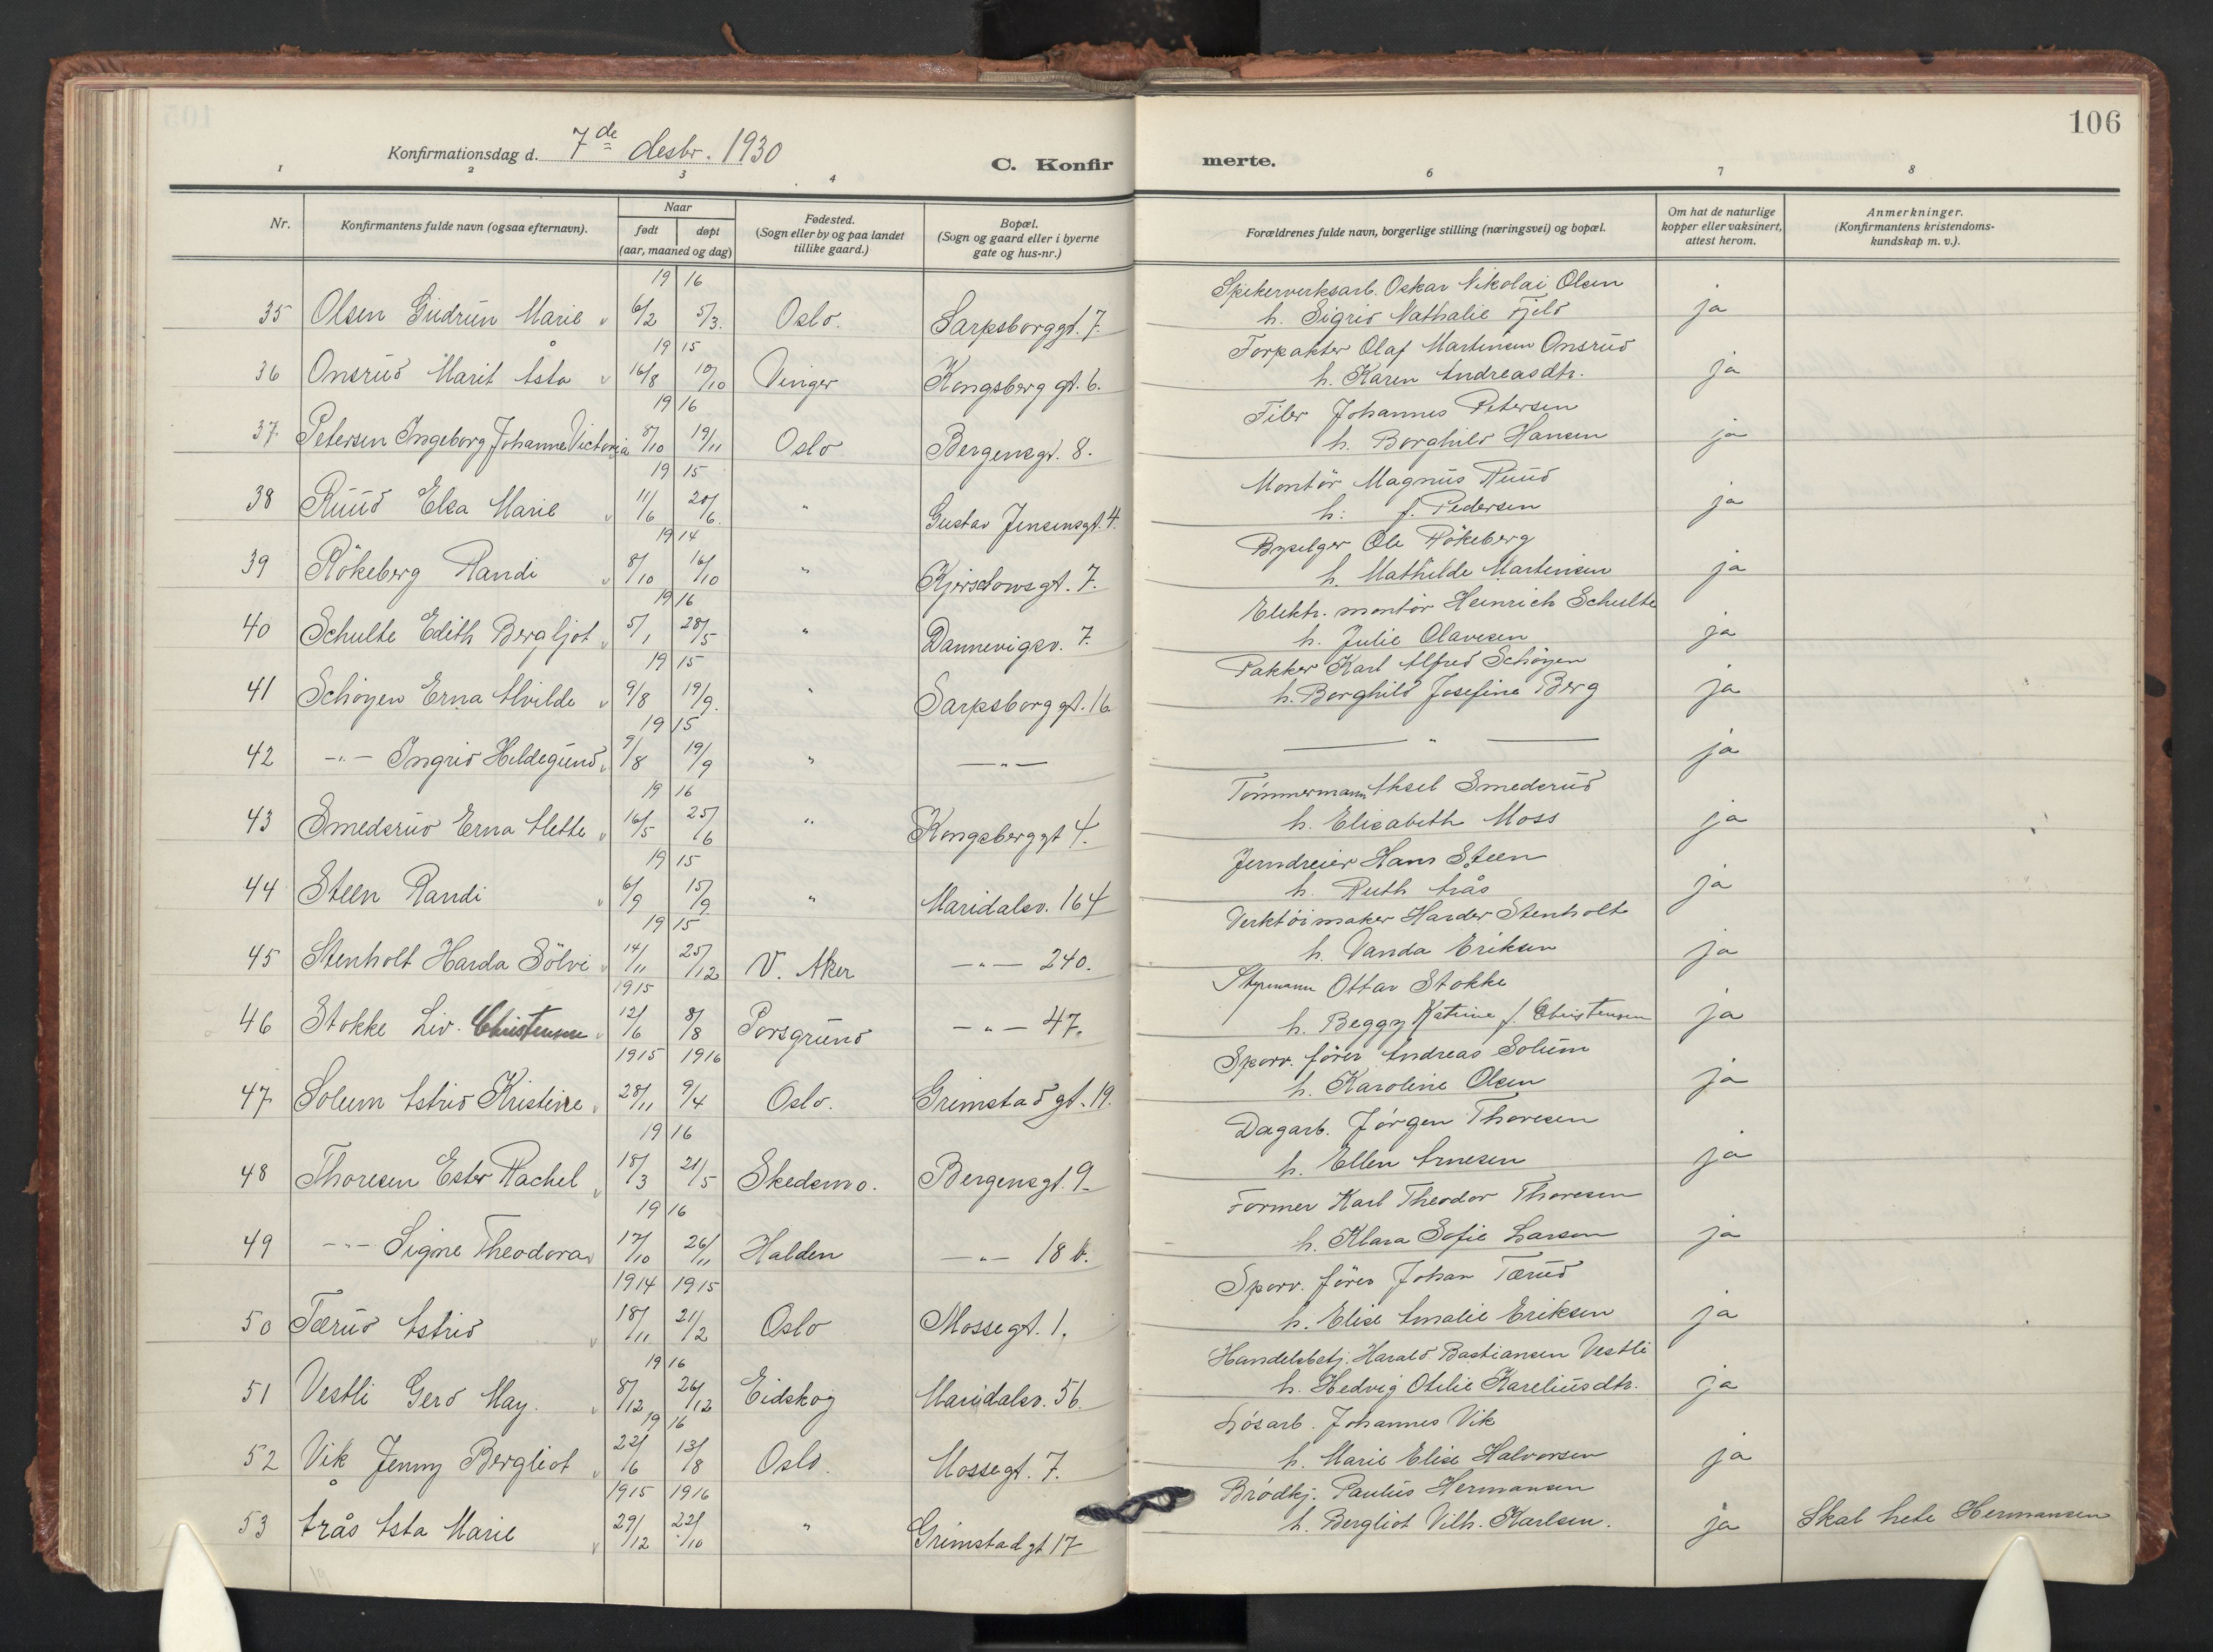 106
Konfirmationsdag d. 7de desbr. 1930
C. Konfir merte.
1 2 3 4 6 7 8
Nr.
Konfirmantens fulde navn (ogsaa efternavn).
Naar
født
døpt
(aar, maaned og dag)
Fødested.
(Sogn eller by og paa landet
tillike gaard.)
Bopæl.
(Sogn og gaard eller i byerne
gate og hus-nr.)
Forældrenes fulde navn, borgerlige stilling (næringsvei) og bopæl.
Om hat de naturlige
kopper eller vaksinert,
attest herom.
Anmerkninger.
(Konfirmantens kristendoms-
kundskap m. v.).
19 16 Spikerverksarb. Oskar Nikolai Olsen
35 Olsen Gudrun Marie v 6/2 5/3. Oslo. Sarpsborggt. 7. h. Sigrid Nathalie Fjeld ja
19 15 Forpakter Olaf Martinsen Onsrud
36 Onsrud Marit Åsta v 16/8 10/10 Vinger Kongsberg gt. 6. h. Karen Andreasdtr. ja
19 16 Filer Johannes Petersen
37 Petersen Ingeborg Johanne Victoria 8/10 19/11 Oslo Bergensgt. 8. h. Borghild Hansen ja
19 15 Montör Magnus Ruud
38 Ruud Elsa Marie v 11/6 20/6. " Gustav Jensensgt. 4. h: f. Pedersen ja
19 14 Byselger Ole Rökeberg
39 Rökeberg Randi v 8/10 16/10 " Kjerschowsgt. 7. h. Mathilde Martinsen ja
19 16 Elektr. montör Heinrich Schulte
40 Schulte Edith Bergljot v 5/1 28/5 " Dannevigsv. 7. h. Julie Olavesen ja
19 15 Pakker Karl Alfred Schöyen
41 Schöyen Erna Alvilde v 9/8 19/9. " Sarpsborg gt. 16 h. Borghild Josefine Berg ja
19 15
42 -"- Ingrid Hildegund v 9/8 19/9 " -"- -"- ja
19 16 Tömmermann Aksel Smedsrud
43 Smedsrud Erna Alette v 16/5 25/6 " Kongsberggt 4. h. Elisabeth Moss ja
19 15 Jerndreier Hans Steen
44 Steen Randi v 6/9 15/9 " Maridalsv. 164 h. Ruth Årås ja
19 15 Verktöimaker Harder Stenholt
45 Stenholt Harda Sölvi v 14/11 25/12 V. Aker -"- 240. h. Vanda Eriksen ja
1915 Styrmann Ottar Stokke
46 Stokke Liv. Christensen v 12/6 8/8 Porsgrund -"- 47. h. Beggy Katrine f. Christensen ja
1915 1916 Sporv. förer Andreas Solum
47 Solum Astrid Kristine v 28/11 9/4 Oslo. Grimstad gt. 19. h. Karoline Olsen ja
19 16 Dagarb. Jörgen Thoresen
48 Thoresen Ester Rachel v 18/3 21/5 Skedsmo. Bergensgt. 9. h. Ellen Arnesen ja
19 16 Former Karl Theodor Thoresen
49 -"- Signe Theodora v 17/10 26/11 Halden -"- 18 b. h. Klara Sofie Larsen ja
1914 1915 Sporv. förer Johan Tærud
50 Tærud Astrid v 18/11 21/2 Oslo Mossegt. 1. h. Elise Amalie Eriksen ja
19 16 Handelsbetj. Harald Bastiansen Vestli
51 Vestli Gerd May. v 8/12 26/12 Eidskog Maridalsv. 56. h. Hedvig Otilie Kareliusdtr. ja
19 16 Lösarb. Johannes Vik
52 Vik Jenny Bergliot v 22/6 13/8 Oslo. Mossegt. 7. h. Marie Elise Halvorsen ja
1915 1916 Brödkj. Paulus Hermansen
53 Årås Asta Marie v 29/12 22/10 " Grimstadgt 17 h. Bergliot Vilh. Karlsen. ja Skal hete Hermansen